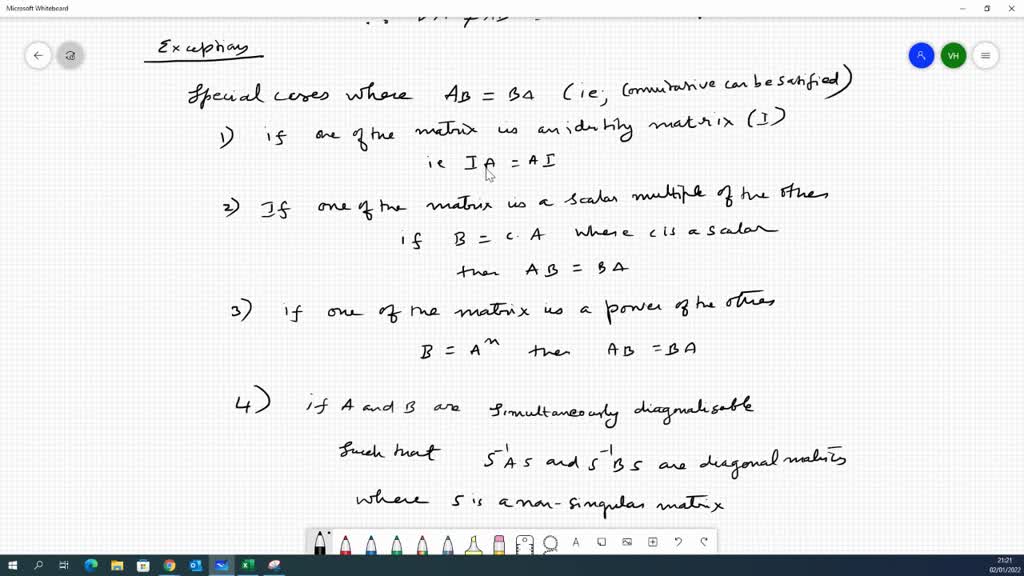 Microsoft Whiteboard
Exceptions
VH
Special cases where AB = BA (ie; Commutative can be satisfied)
1) if one of the matrix is an identity matrix (I)
ie IA = AI
2) If one of the matrix is a scalar multiple of the others
if B = c. A where c is a scalar
then AB = BA
3) if one of the matrix is a power of the others
B = Aⁿ then AB = BA
4) if A and B are simultaneously diagonalisable
Such that S⁻¹AS and S⁻¹BS are diagonal matrices
where S is a non-singular matrix
21:21
02/01/2022